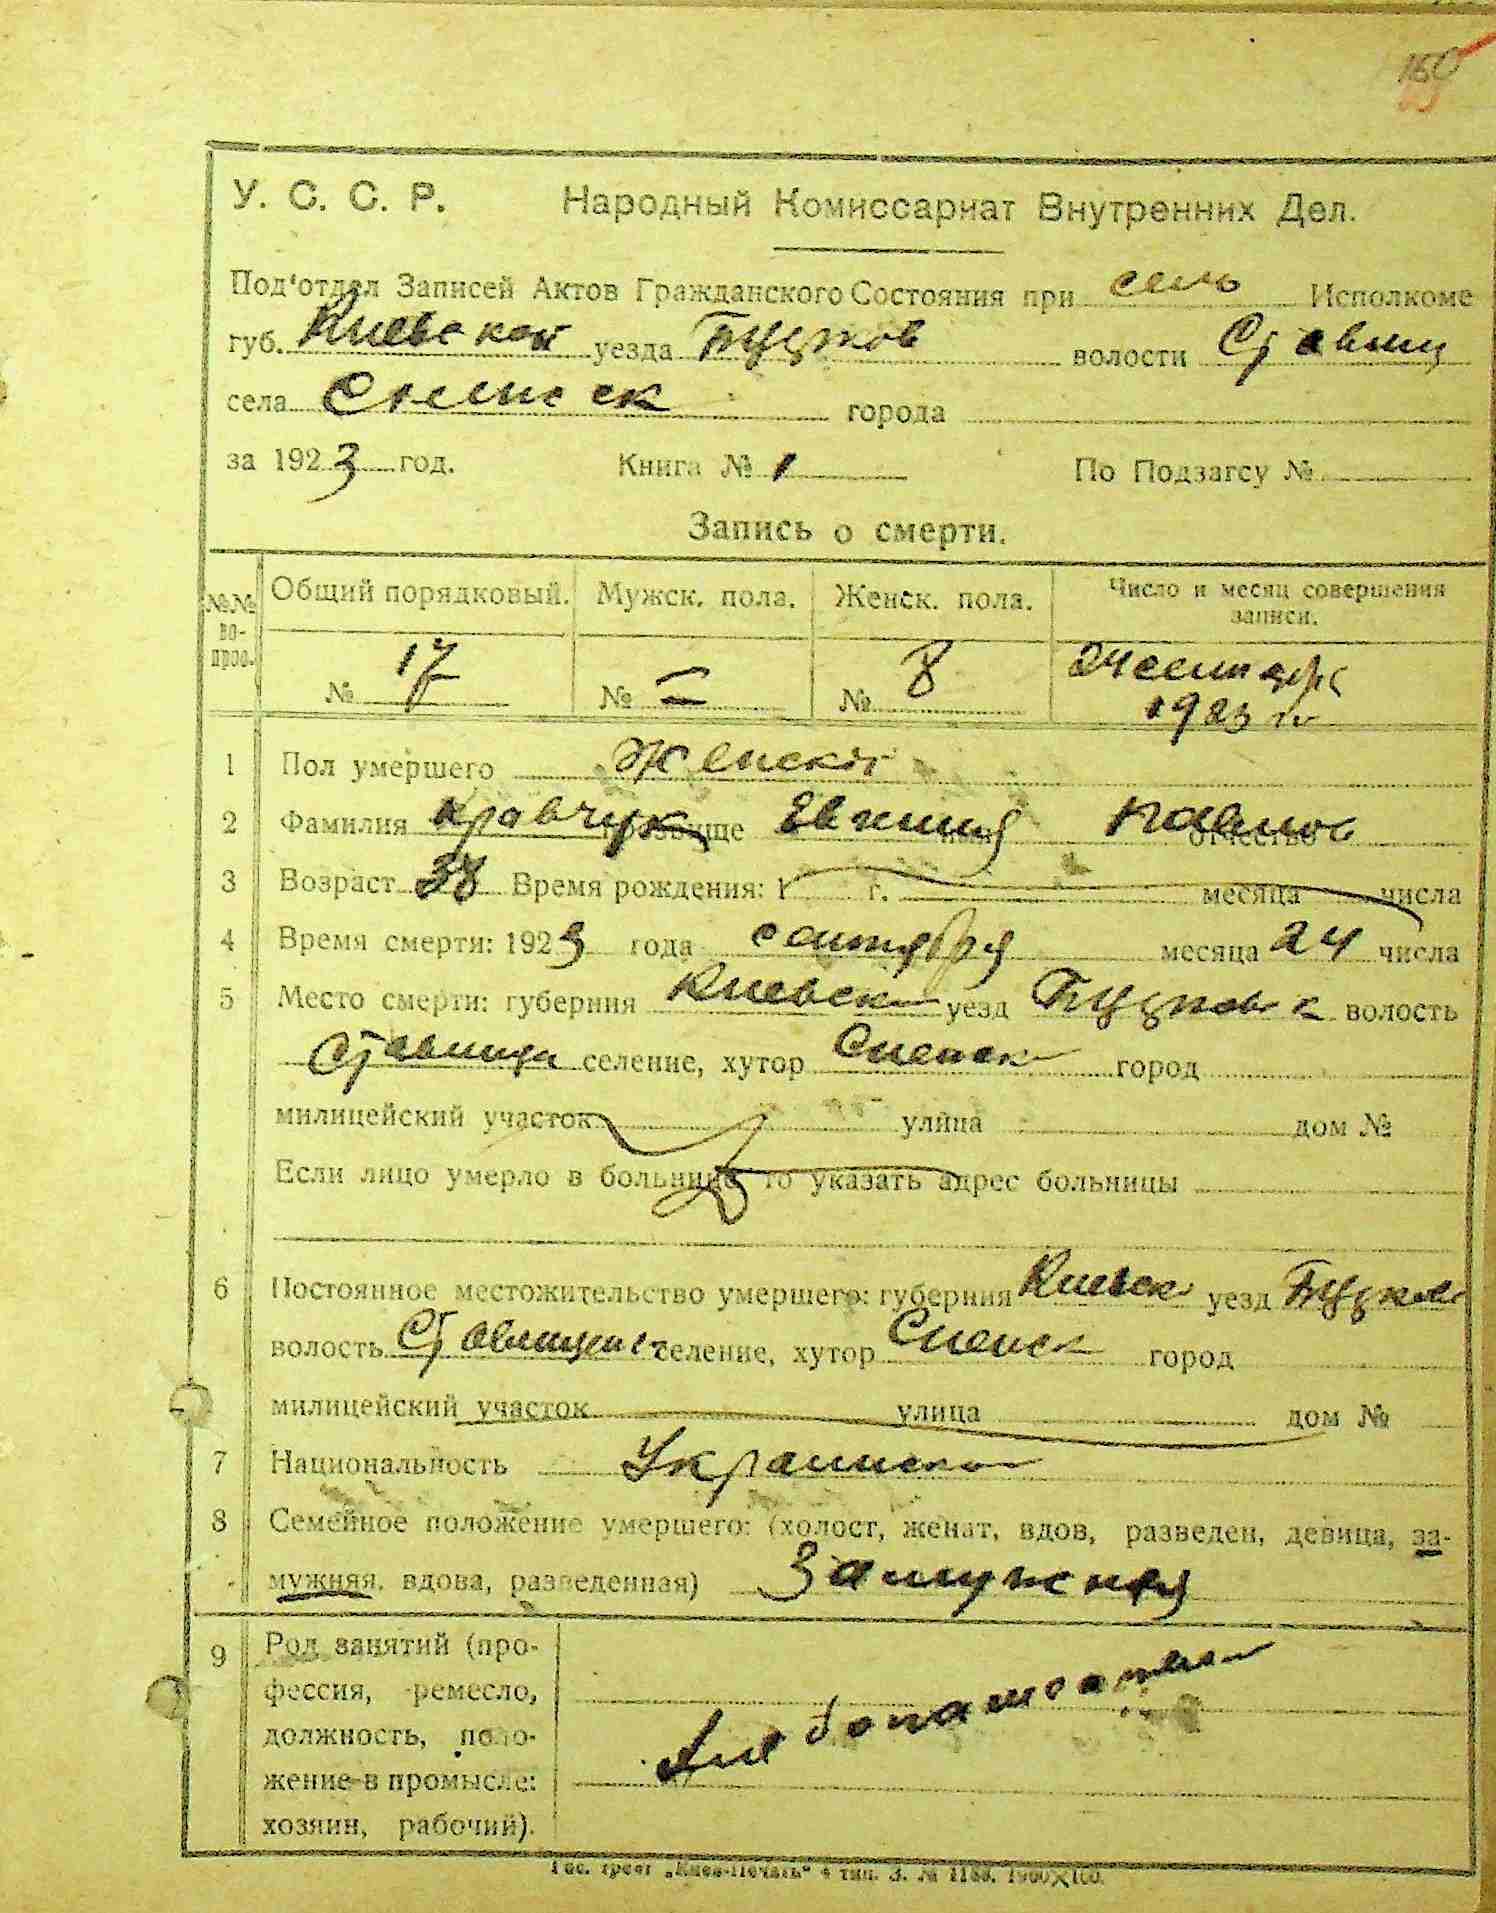 150
У. С. С. Р. Народный Комиссариат Внутренних Дел.
Под‘отдел Записей Актов Гражданского Состояния при сель Исполкоме
губ. Киевской уезда волости Ставищ
села города
за 1923 год. Книга № 1 По Подзагсу №
Запись о смерти.
№№ вопрос. Общий порядковый. Мужск. пола. Женск. пола. Число и месяц совершения записи.
№ 17 № — № 8 24 сентября
1923 г.
1 Пол умершего Женский
2 Фамилия Кравчук прозвище имя Павлов отчество
3 Возраст 38 Время рождения: 1 г. месяца числа
4 Время смерти: 1923 года сентября месяца 24 числа
5 Место смерти: губерния Киевск уезд волость
Ставище селение, хутор город
милицейский участок улица дом №
Если лицо умерло в больнице то указать адрес больницы
6 Постоянное местожительство умершего: губерния Киевск уезд
волость селение, хутор город
милицейский участок улица дом №
7 Национальность
8 Семейное положение умершего: (холост, женат, вдов, разведен, девица, за-
мужняя, вдова, разведенная) Замужняя
9 Род занятий (про-
фессия, ремесло,
должность, поло-
жение в промысле:
хозяин, рабочий).
Гос. трест „Киев-Печать“ 4 тип. З. №